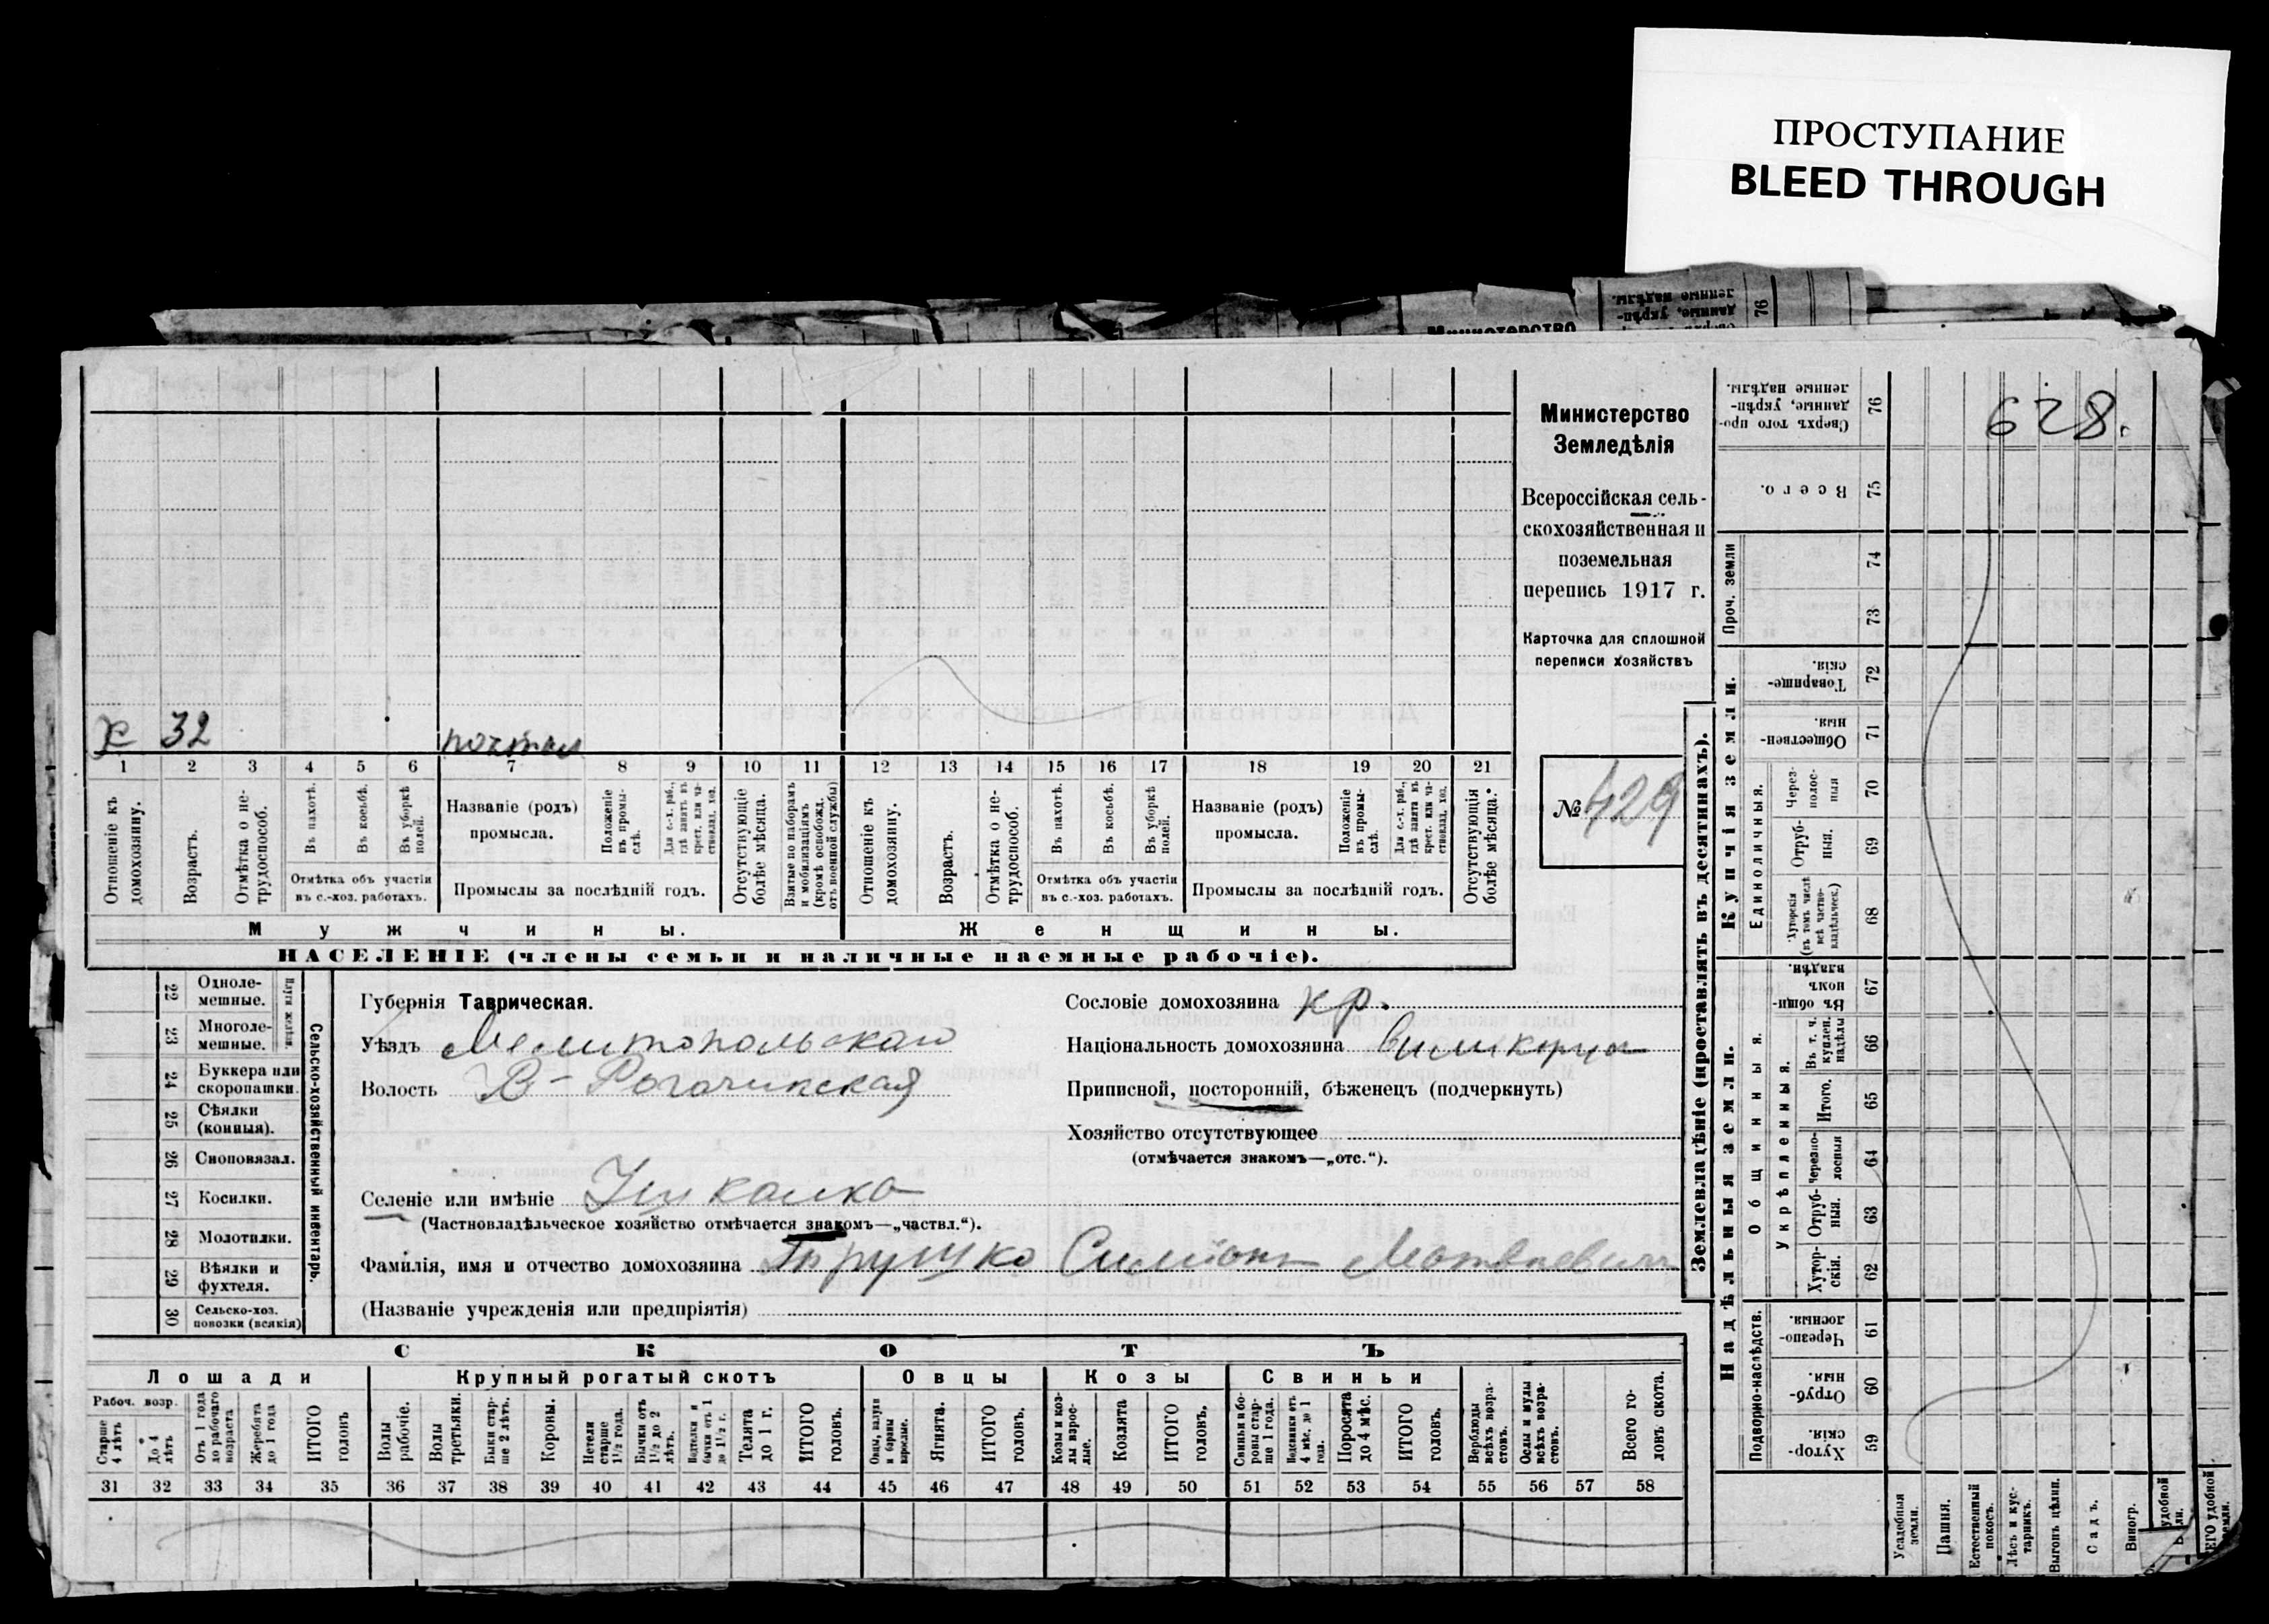 ПРОСТУПАНИЕ
BLEED THROUGH
Министерство
Земледѣлія
Всероссійская сель-
скохозяйственная и
поземельная
перепись 1917 г.
Карточка для сплошной
переписи хозяйствъ
№ 429
628.
х 32
1 2 3 4 5 6 7 8 9 10 11 12 13 14 15 16 17 18 19 20 21
Отношеніе къ домохозяину.
Возрастъ.
Отмѣтка о не-трудоспособ.
Въ пахотѣ.
Въ косьбѣ.
Въ уборкѣ полей.
Отмѣтка объ участіи
въ с.-хоз. работахъ.
Названіе (родъ)
промысла.
Положеніе въ промы-слѣ.
Для с.-х. раб., гдѣ занятъ въ крест. или ча-стновлад. хоз.
Промыслы за послѣдній годъ.
Отсутствующіе болѣе мѣсяца.
Взятые по наборамъ и мобилизаціямъ (кромѣ освобожд. отъ военной службы)
Отношеніе къ домохозяину.
Возрастъ.
Отмѣтка о не-трудоспособ.
Въ пахотѣ.
Въ косьбѣ.
Въ уборкѣ полей.
Отмѣтка объ участіи
въ с.-хоз. работахъ.
Названіе (родъ)
промысла.
Положеніе въ промы-слѣ.
Для с.-х. раб., гдѣ занятъ въ крест. или ча-стновлад. хоз.
Промыслы за послѣдній годъ.
Отсутствующія болѣе мѣсяца.
Мужчины. Женщины.
НАСЕЛЕНІЕ (члены семьи и наличные наемные рабочіе).
Сельско-хозяйственный инвентарь.
22 Одноле-мешные.
23 Многоле-мешные.
24 Буккера или скоропашки.
25 Сѣялки (конныя).
26 Сноповязал.
27 Косилки.
28 Молотилки.
29 Вѣялки и фухтеля.
30 Сельско-хоз. повозки (всякія)
Губернія Таврическая.
Уѣздъ Мелитопольскаго
Волость В-Рогачикская
Селеніе или имѣніе Ушкалка
(Частновладѣльческое хозяйство отмѣчается знакомъ—„частвл.“).
Фамилія, имя и отчество домохозяина Симіонъ Матвѣевичъ
(Названіе учрежденія или предпріятія)
Сословіе домохозяина кр.
Національность домохозяина
Приписной, посторонній, бѣженецъ (подчеркнуть)
Хозяйство отсутствующее
(отмѣчается знакомъ—„отс.“).
СКОТЪ
Лошади Крупный рогатый скотъ Овцы Козы Свиньи
Рабоч. возр.
Старше 4 лѣтъ
До 4 лѣтъ
Отъ 1 года до рабочаго возраста
Жеребята до 1 года
ИТОГО головъ
Волы рабочіе.
Волы третьяки.
Быки стар-ше 2 лѣтъ.
Коровы.
Нетели старше 1½ года.
Бычки отъ 1½ до 2 лѣтъ.
Подтелки и бычки отъ 1 до 1½ г.
Телята до 1 г.
ИТОГО головъ.
Овцы, валухи и бараны взрослые.
Ягнята.
ИТОГО головъ.
Козы и коз-лы взрос-лые.
Козлята
ИТОГО головъ.
Свиньи и бо-ровы стар-ше 1 года.
Подсвинки отъ 4 мѣс. до 1 года.
Поросята до 4 мѣс.
ИТОГО головъ.
Верблюды всѣхъ возра-стовъ.
Ослы и мулы всѣхъ возра-стовъ.
Всего го-ловъ скота.
31 32 33 34 35 36 37 38 39 40 41 42 43 44 45 46 47 48 49 50 51 52 53 54 55 56 57 58
Землевладѣніе (проставлять въ десятинахъ).
Купчія земли.
Надѣльныя земли.
Сверхъ того про-данные, укрѣп-ленные надѣлы. 76
Всего. 75
Проч. земли
74
73
Товарище-скія. 72
Обществен-ныя. 71
Единоличныя.
Через-полос-ныя 70
Отруб-ныя. 69
Хуторскія (въ томъ числѣ всѣ частно-владѣльческ.) 68
Въ общи-номъ владѣн. 67
Общинныя.
Укрѣпленныя.
Въ т. ч. куплен. надѣлы 66
Итого. 65
Черезпо-лосныя 64
Отруб-ныя. 63
Хутор-скія. 62
Подворно-наслѣдств.
Черезпо-лосныя. 61
Отруб-ныя. 60
Хутор-скія. 59
Усадебныя земли.
Пашня.
Естественный покосъ.
Лѣсъ и кус-тарникъ.
Выгонъ цѣлин.
Садъ.
Виногр.